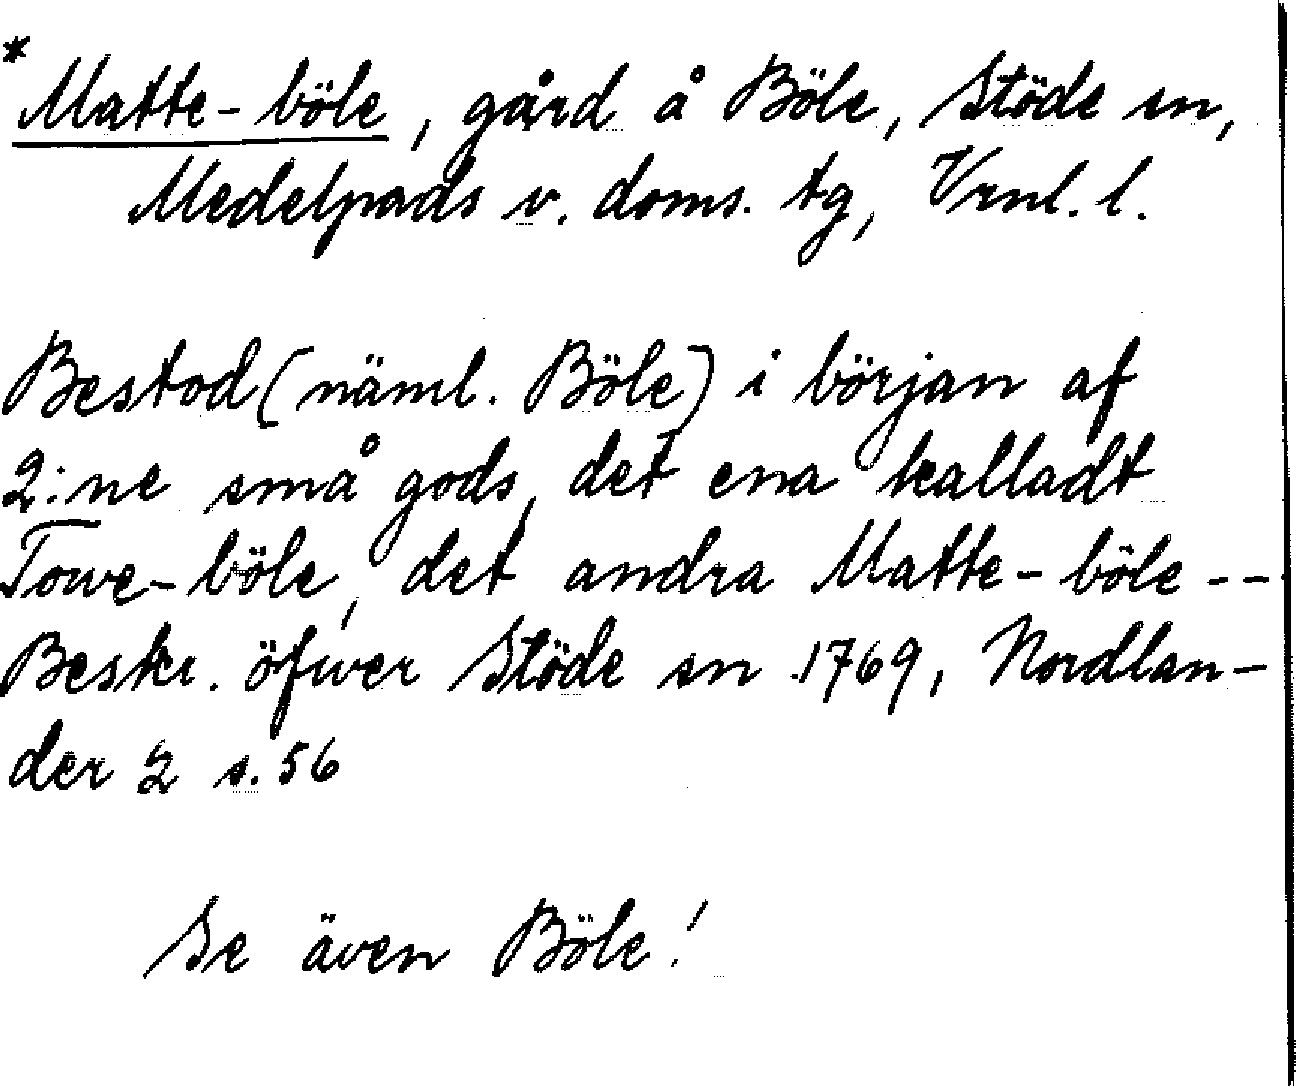 * Matte-böle, gård å Böle, Stöde sn,
Medelpads v. doms. tg, Vrnl. l.
Bestod (näml. Böle) i början af
2:ne små gods, det ena kalladt
Towe-böle, det andra Matte-böle --
Beskr. öfwer Stöde sn 1769, Nordlan-
der 2 s. 56
Se även Böle!